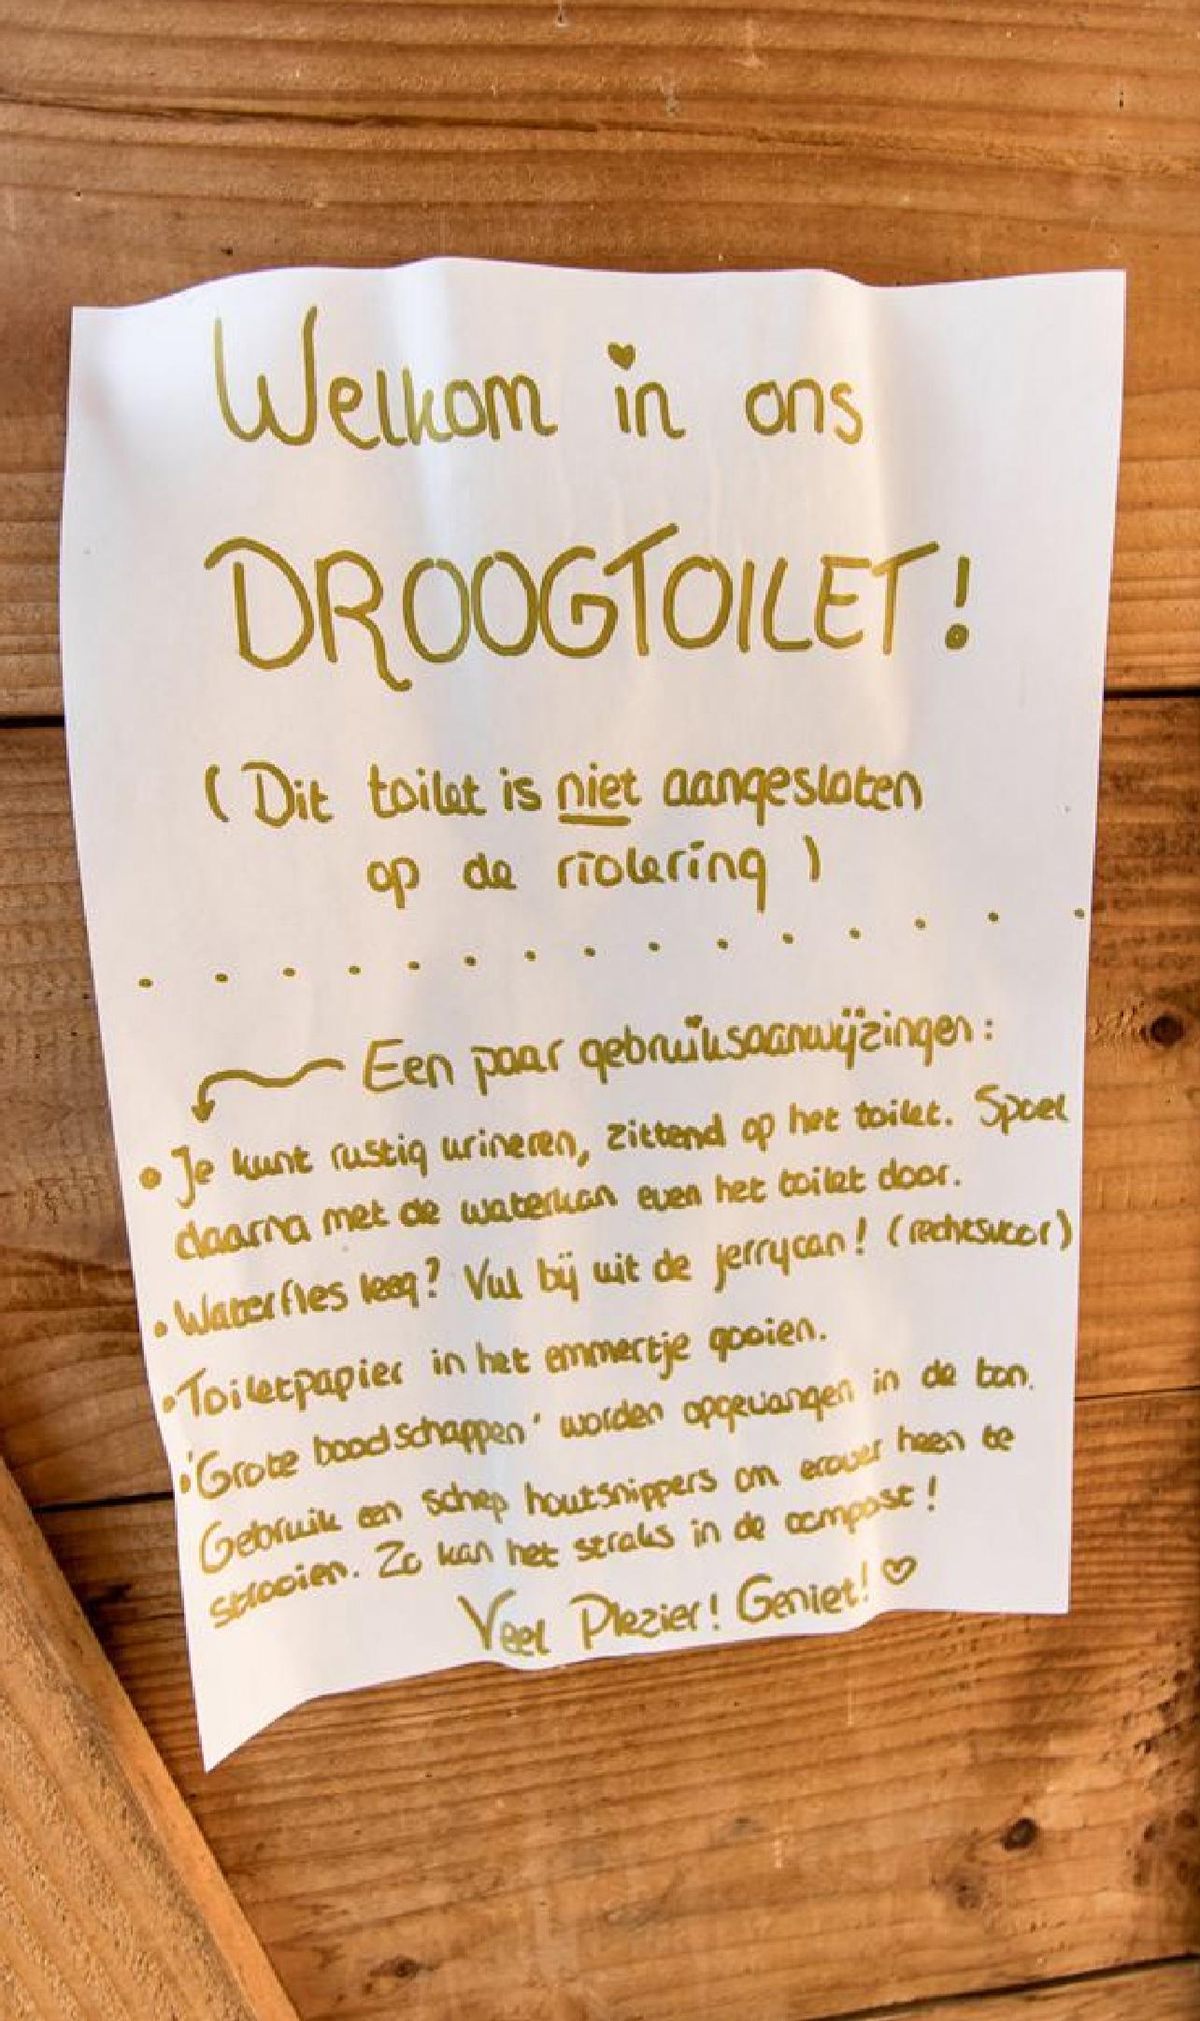 Welkom in ons
DROOGTOILET!
(Dit toilet is niet aangesloten
op de riolering)
. . . . . . . . . . . . . . .
Een paar gebruiksaanwijzingen:
• Je kunt rustig urineren, zittend op het toilet. Spoel
daarna met de waterkan even het toilet door.
• Waterfles leeg? Vul bij uit de jerrycan! (rechtsvoor)
• Toiletpapier in het emmertje gooien.
• 'Grote boodschappen' worden opgevangen in de ton.
Gebruik een schep houtsnippers om erover heen te
strooien. Zo kan het straks in de compost!
Veel Plezier! Geniet! ♡